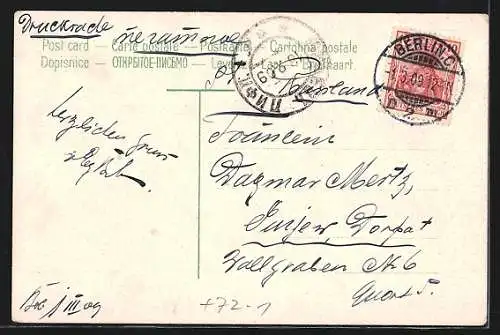 Drucksache
печатное
Post card — Carte postale — Postkarte — Cartolina postale
Dopisnice — ОТКРЫТОЕ ПИСЬМО — Levelező-Lap — Briefkaart
Russland
BERLIN, C
Herzlichen Gruss
Fräulein
Dagmar Mertz,
Jurjew, Dorpat
Wallgraben No 6
Quart 5.
III 09
+72-1